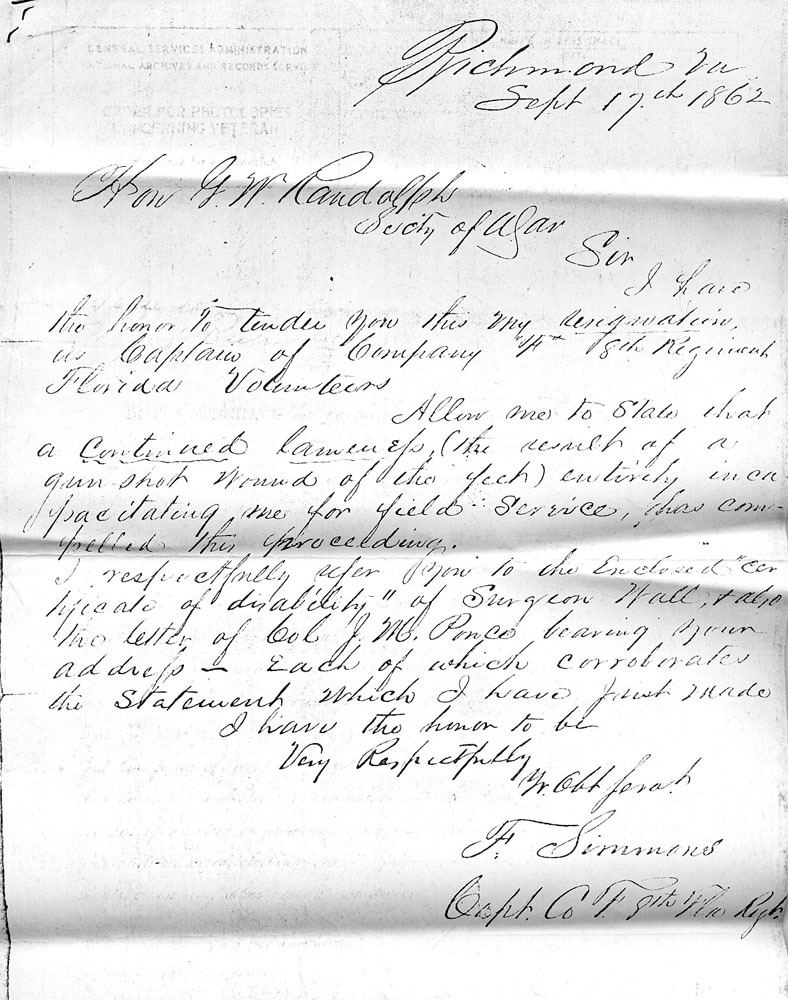 GENERAL SERVICES ADMINISTRATION
NATIONAL ARCHIVES AND RECORDS SERVICE
ORDER FOR PHOTOCOPIES
CONCERNING VETERAN
Richmond Va
Sept 17th 1862
Hon G. W. Randolph
Secty of War
Sir
I have
the honor to tender you this my resignation,
as Captain of Company "F" 8th Regiment
Florida Volunteers
Allow me to State that
a continued lameness, (the result of a
gun-shot wound of the feet) entirely inca-
pacitating me for field Service, has com-
pelled this proceeding.
I respectfully refer you to the Enclosed "cer
tificate of disability" of Surgeon Wall, & also
the letter of Col J. M. Ponce bearing your
address — Each of which corroborates
the Statement which I have just made
I have the honor to be
Very Respectfully
Yr. Obt Servt
F. Simmons
Capt. Co F. 8th Fla Regt.